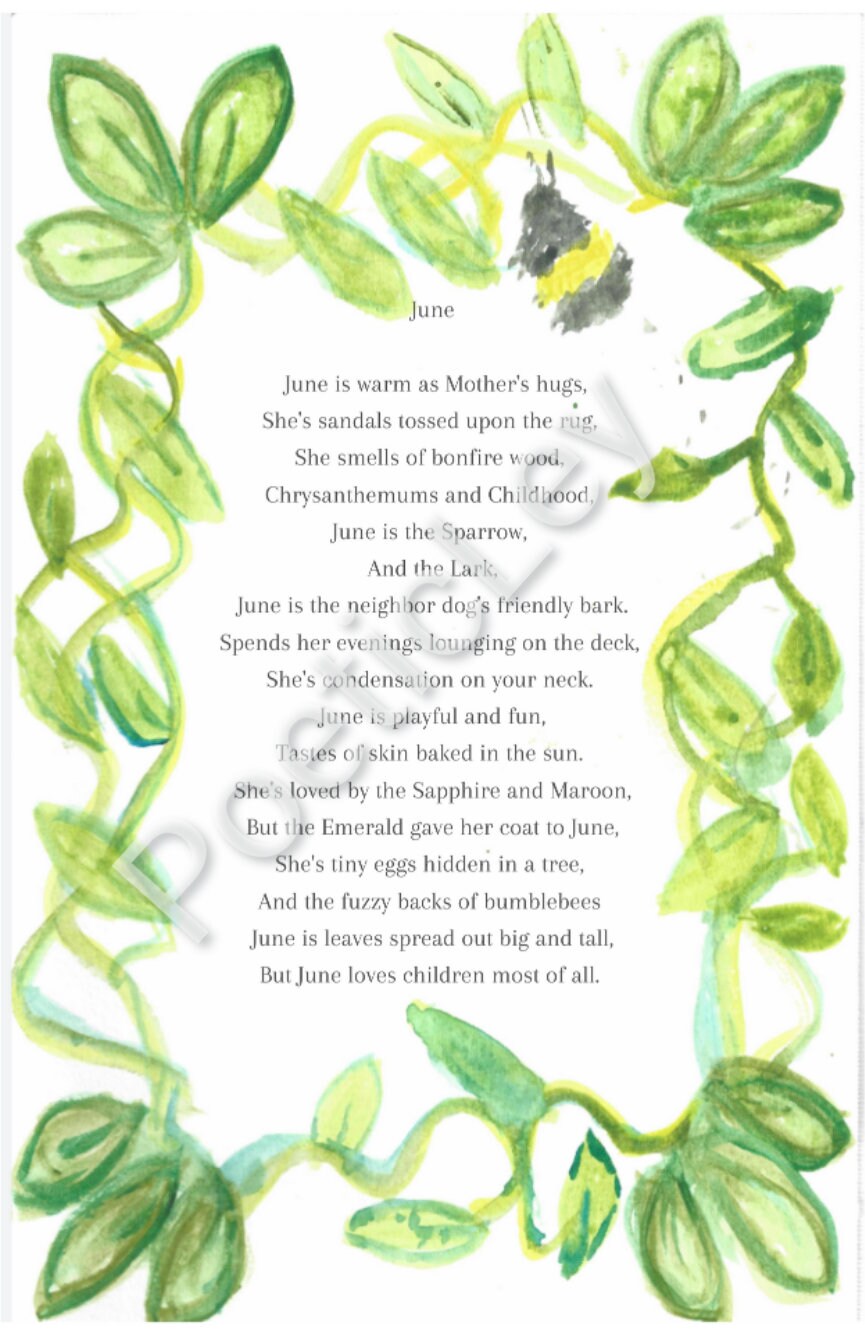 June
June is warm as Mother's hugs,
She's sandals tossed upon the rug,
She smells of bonfire wood,
Chrysanthemums and Childhood,
June is the Sparrow,
And the Lark,
June is the neighbor dog's friendly bark.
Spends her evenings lounging on the deck,
She's condensation on your neck.
June is playful and fun,
Tastes of skin baked in the sun.
She's loved by the Sapphire and Maroon,
But the Emerald gave her coat to June,
She's tiny eggs hidden in a tree,
And the fuzzy backs of bumblebees
June is leaves spread out big and tall,
But June loves children most of all.
PoeticLey